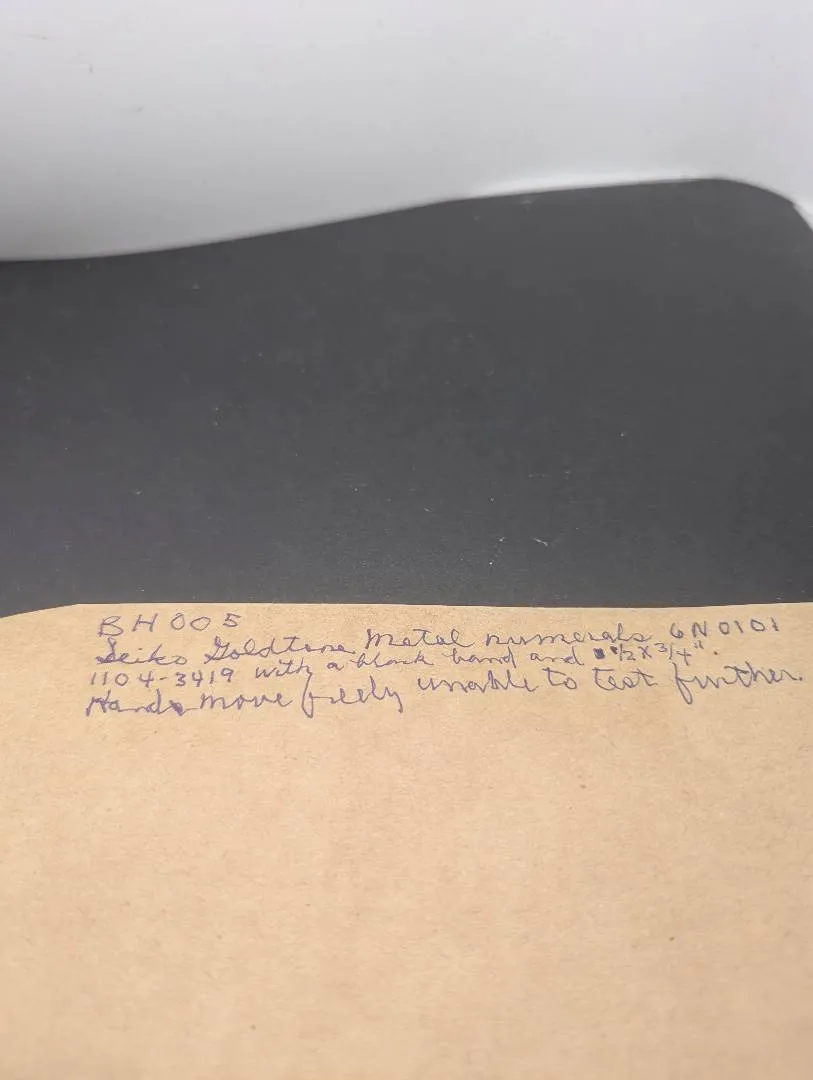 BH 005
Seiko Goldtone Metal numerals 6N0101
1104-3419 with a black band and 1/2 x 3/4".
Hands move freely unable to test further.